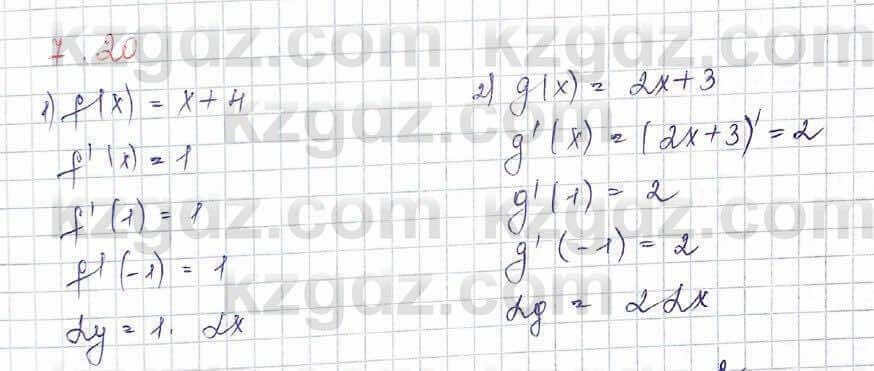 7.20
1) f(x) = x + 4
f'(x) = 1
f'(1) = 1
f'(-1) = 1
dy = 1 · dx
2) g(x) = 2x + 3
g'(x) = (2x + 3)' = 2
g'(1) = 2
g'(-1) = 2
dy = 2dx
kzgdz.com
kzgdz.com
kzgdz.com
kzgdz.com
kzgdz.com
kzgdz.com